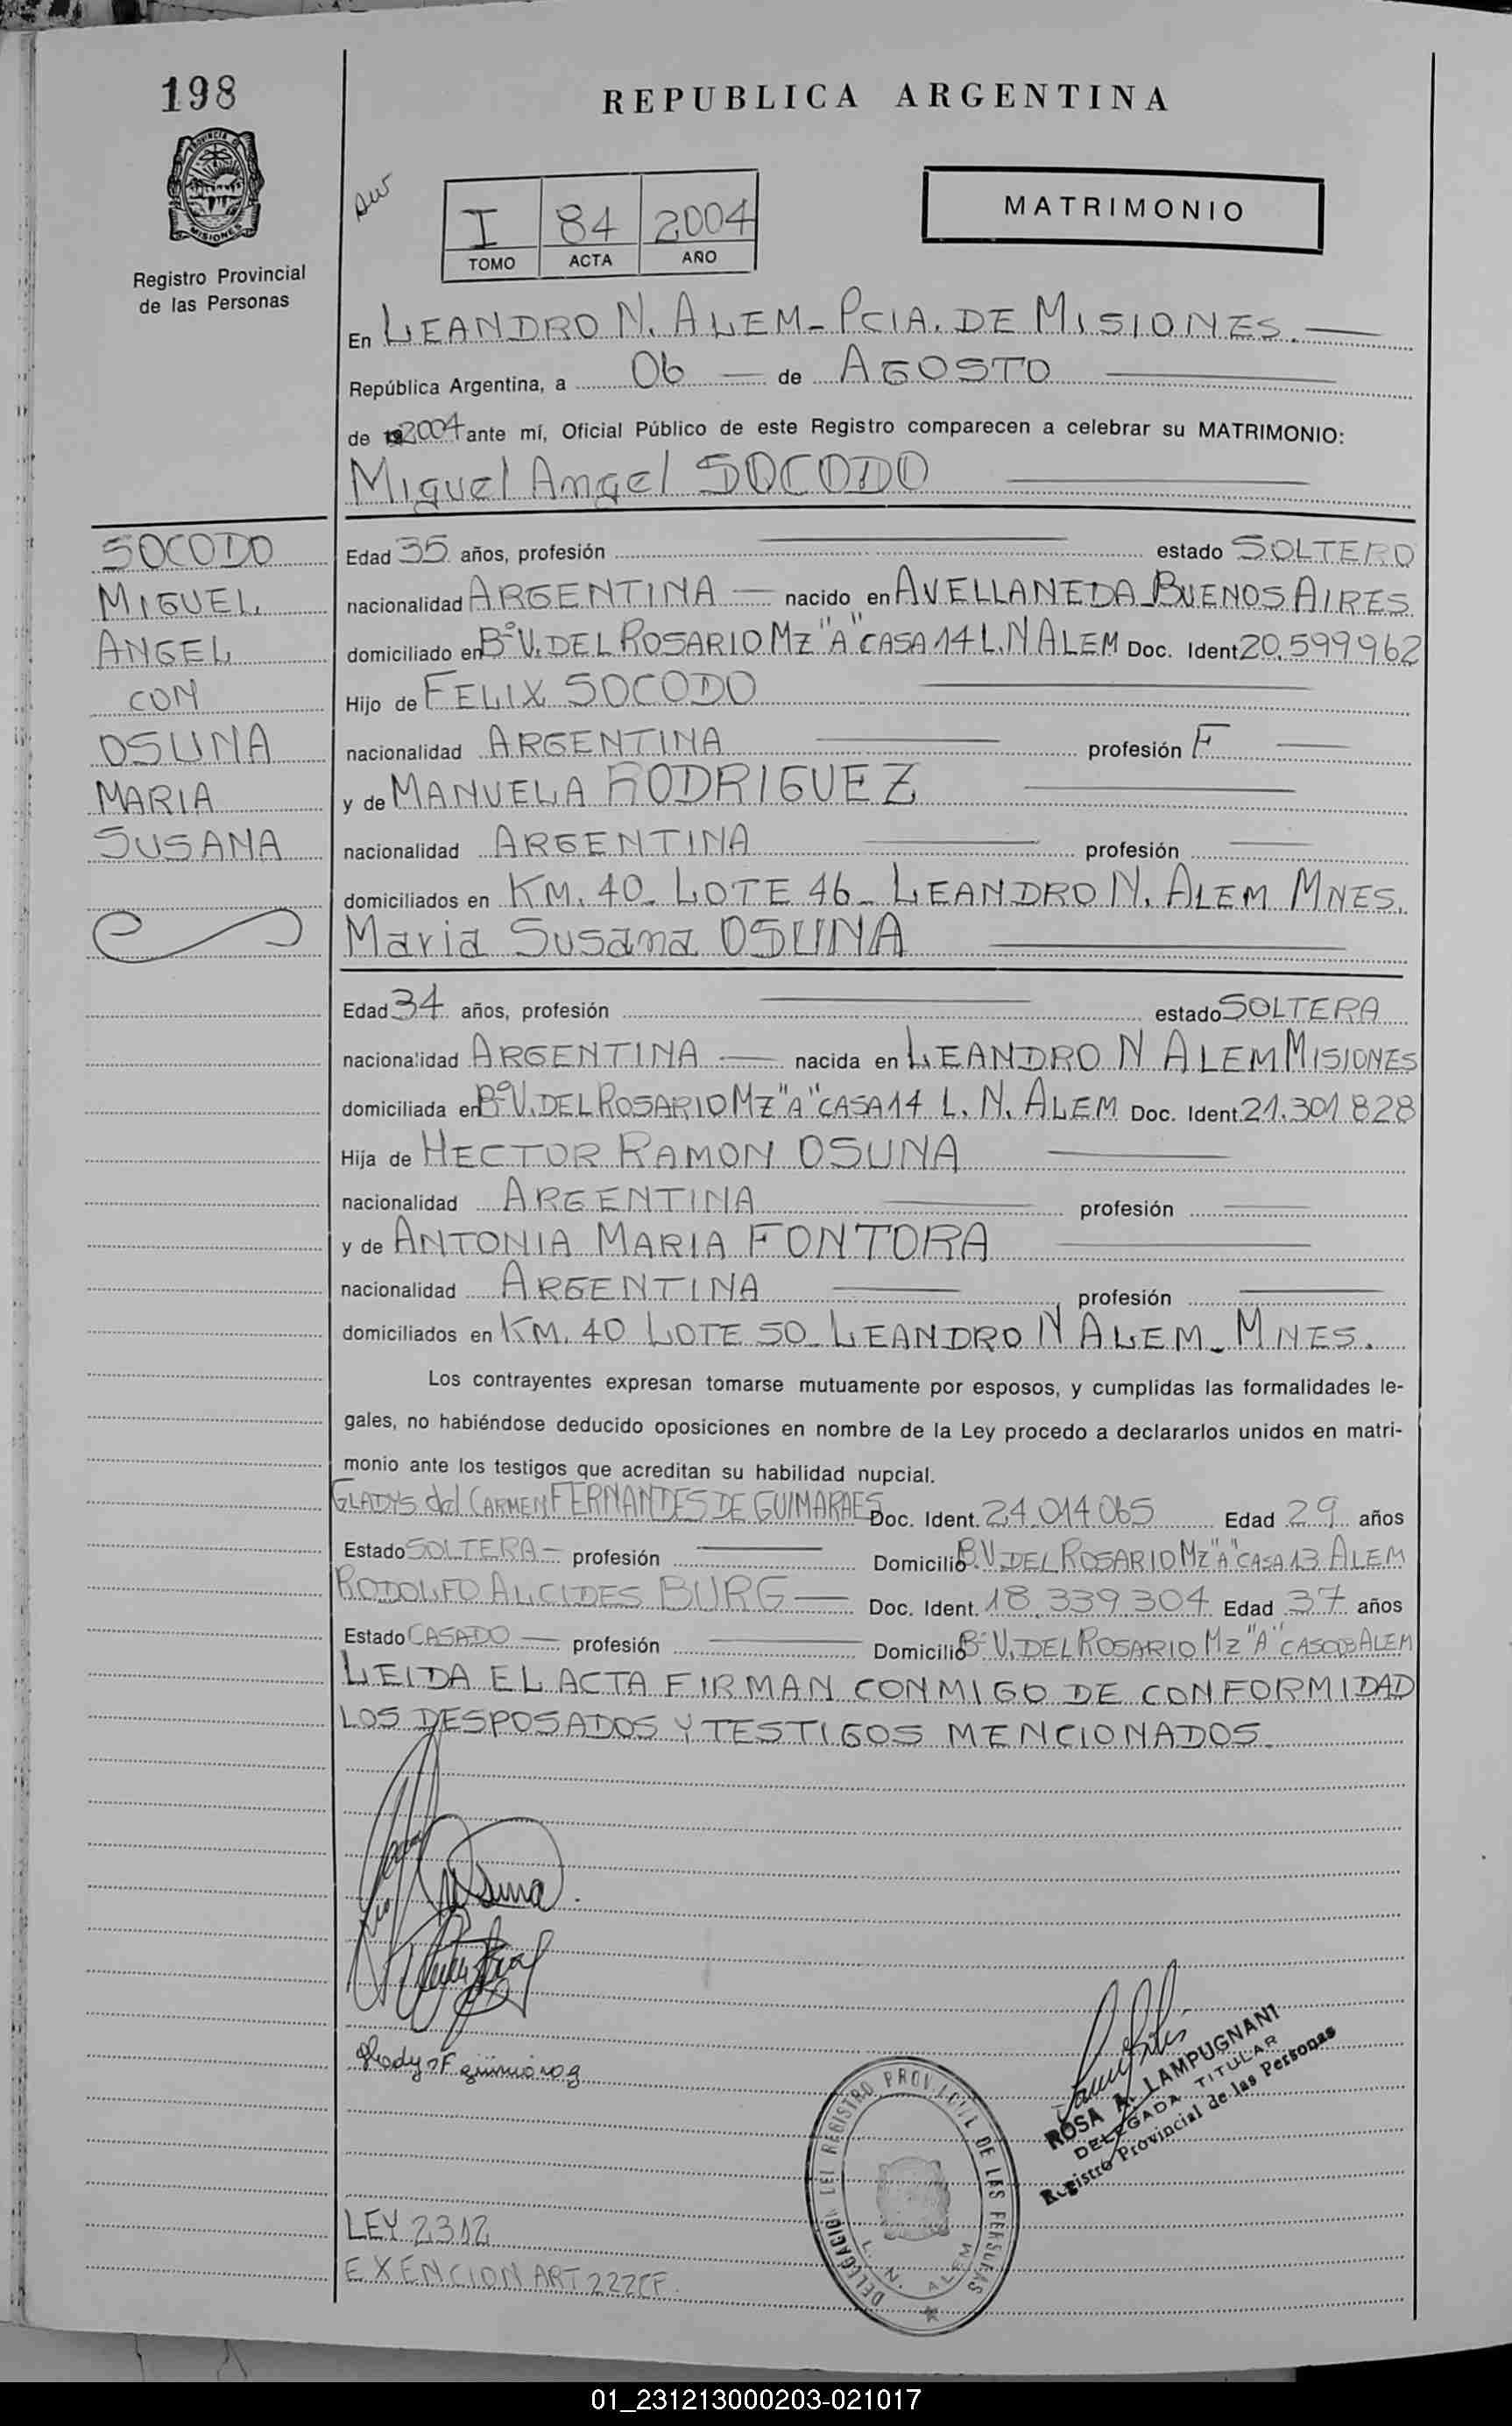 198
REPUBLICA ARGENTINA
PROVINCIA DE
MISIONES
Registro Provincial
de las Personas
I 84 2004
TOMO ACTA AÑO
MATRIMONIO
En LEANDRO N. ALEM - PCIA. DE MISIONES.
República Argentina, a 06 de AGOSTO
de 2004 ante mí, Oficial Público de este Registro comparecen a celebrar su MATRIMONIO:
Miguel Angel SOCODO
SOCODO
MIGUEL
ANGEL
CON
OSUNA
MARIA
SUSANA
Edad 35 años, profesión estado SOLTERO
nacionalidad ARGENTINA nacido en AVELLANEDA-BUENOS AIRES
domiciliado en Bº V. DEL ROSARIO MZ "A" CASA 14 L.N ALEM Doc. Ident. 20.599962
Hijo de FELIX SOCODO
nacionalidad ARGENTINA profesión F
y de MANUELA RODRIGUEZ
nacionalidad ARGENTINA profesión
domiciliados en KM. 40 - LOTE 46 - LEANDRO N. ALEM MNES.
Maria Susana OSUNA
Edad 34 años, profesión estado SOLTERA
nacionalidad ARGENTINA nacida en LEANDRO N ALEM MISIONES
domiciliada en Bº V. DEL ROSARIO MZ "A" CASA 14 L. N. ALEM Doc. Ident. 21.301.828
Hija de HECTOR RAMON OSUNA
nacionalidad ARGENTINA profesión
y de ANTONIA MARIA FONTORA
nacionalidad ARGENTINA profesión
domiciliados en KM. 40 LOTE 50 - LEANDRO N ALEM - MNES.
Los contrayentes expresan tomarse mutuamente por esposos, y cumplidas las formalidades le-
gales, no habiéndose deducido oposiciones en nombre de la Ley procedo a declararlos unidos en matri-
monio ante los testigos que acreditan su habilidad nupcial.
GLADYS del CARMEN FERNANDES DE GUIMARAES Doc. Ident. 24.014.065 Edad 29 años
Estado SOLTERA profesión Domicilio B. V. DEL ROSARIO MZ "A" CASA 13 ALEM
RODOLFO ALCIDES BURG Doc. Ident. 18.339.304 Edad 37 años
Estado CASADO profesión Domicilio Bº V. DEL ROSARIO MZ "A" ALEM
LEIDA EL ACTA FIRMAN CONMIGO DE CONFORMIDAD
LOS DESPOSADOS Y TESTIGOS MENCIONADOS.
Osuna
ROSA A. LAMPUGNANI
DELEGADA TITULAR
Registro Provincial de las Personas
DELEGACION DEL REGISTRO PROVINCIAL DE LAS PERSONAS
L. N. ALEM
LEY 2312
EXENCION ART 222CF.
01_231213000203-021017